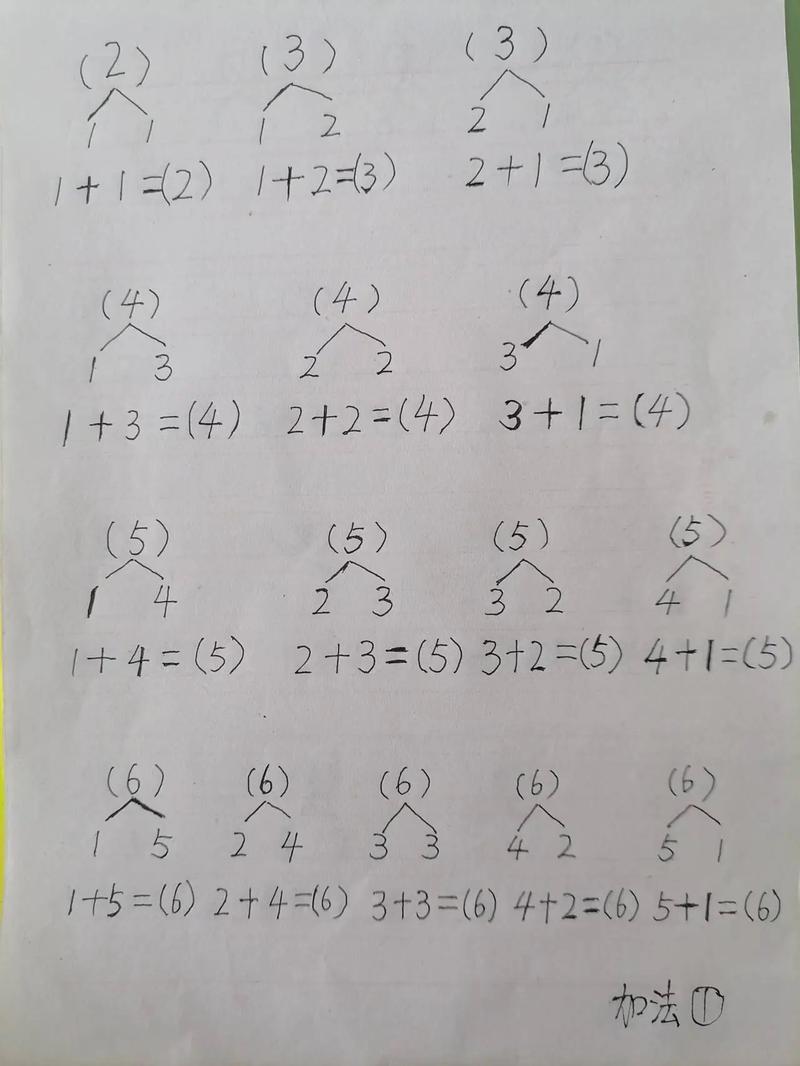 (2) (3) (3)
1 1 1 2 2 1
1+1=(2) 1+2=(3) 2+1=(3)
(4) (4) (4)
1 3 2 2 3 1
1+3=(4) 2+2=(4) 3+1=(4)
(5) (5) (5) (5)
1 4 2 3 3 2 4 1
1+4=(5) 2+3=(5) 3+2=(5) 4+1=(5)
(6) (6) (6) (6) (6)
1 5 2 4 3 3 4 2 5 1
1+5=(6) 2+4=(6) 3+3=(6) 4+2=(6) 5+1=(6)
加法①